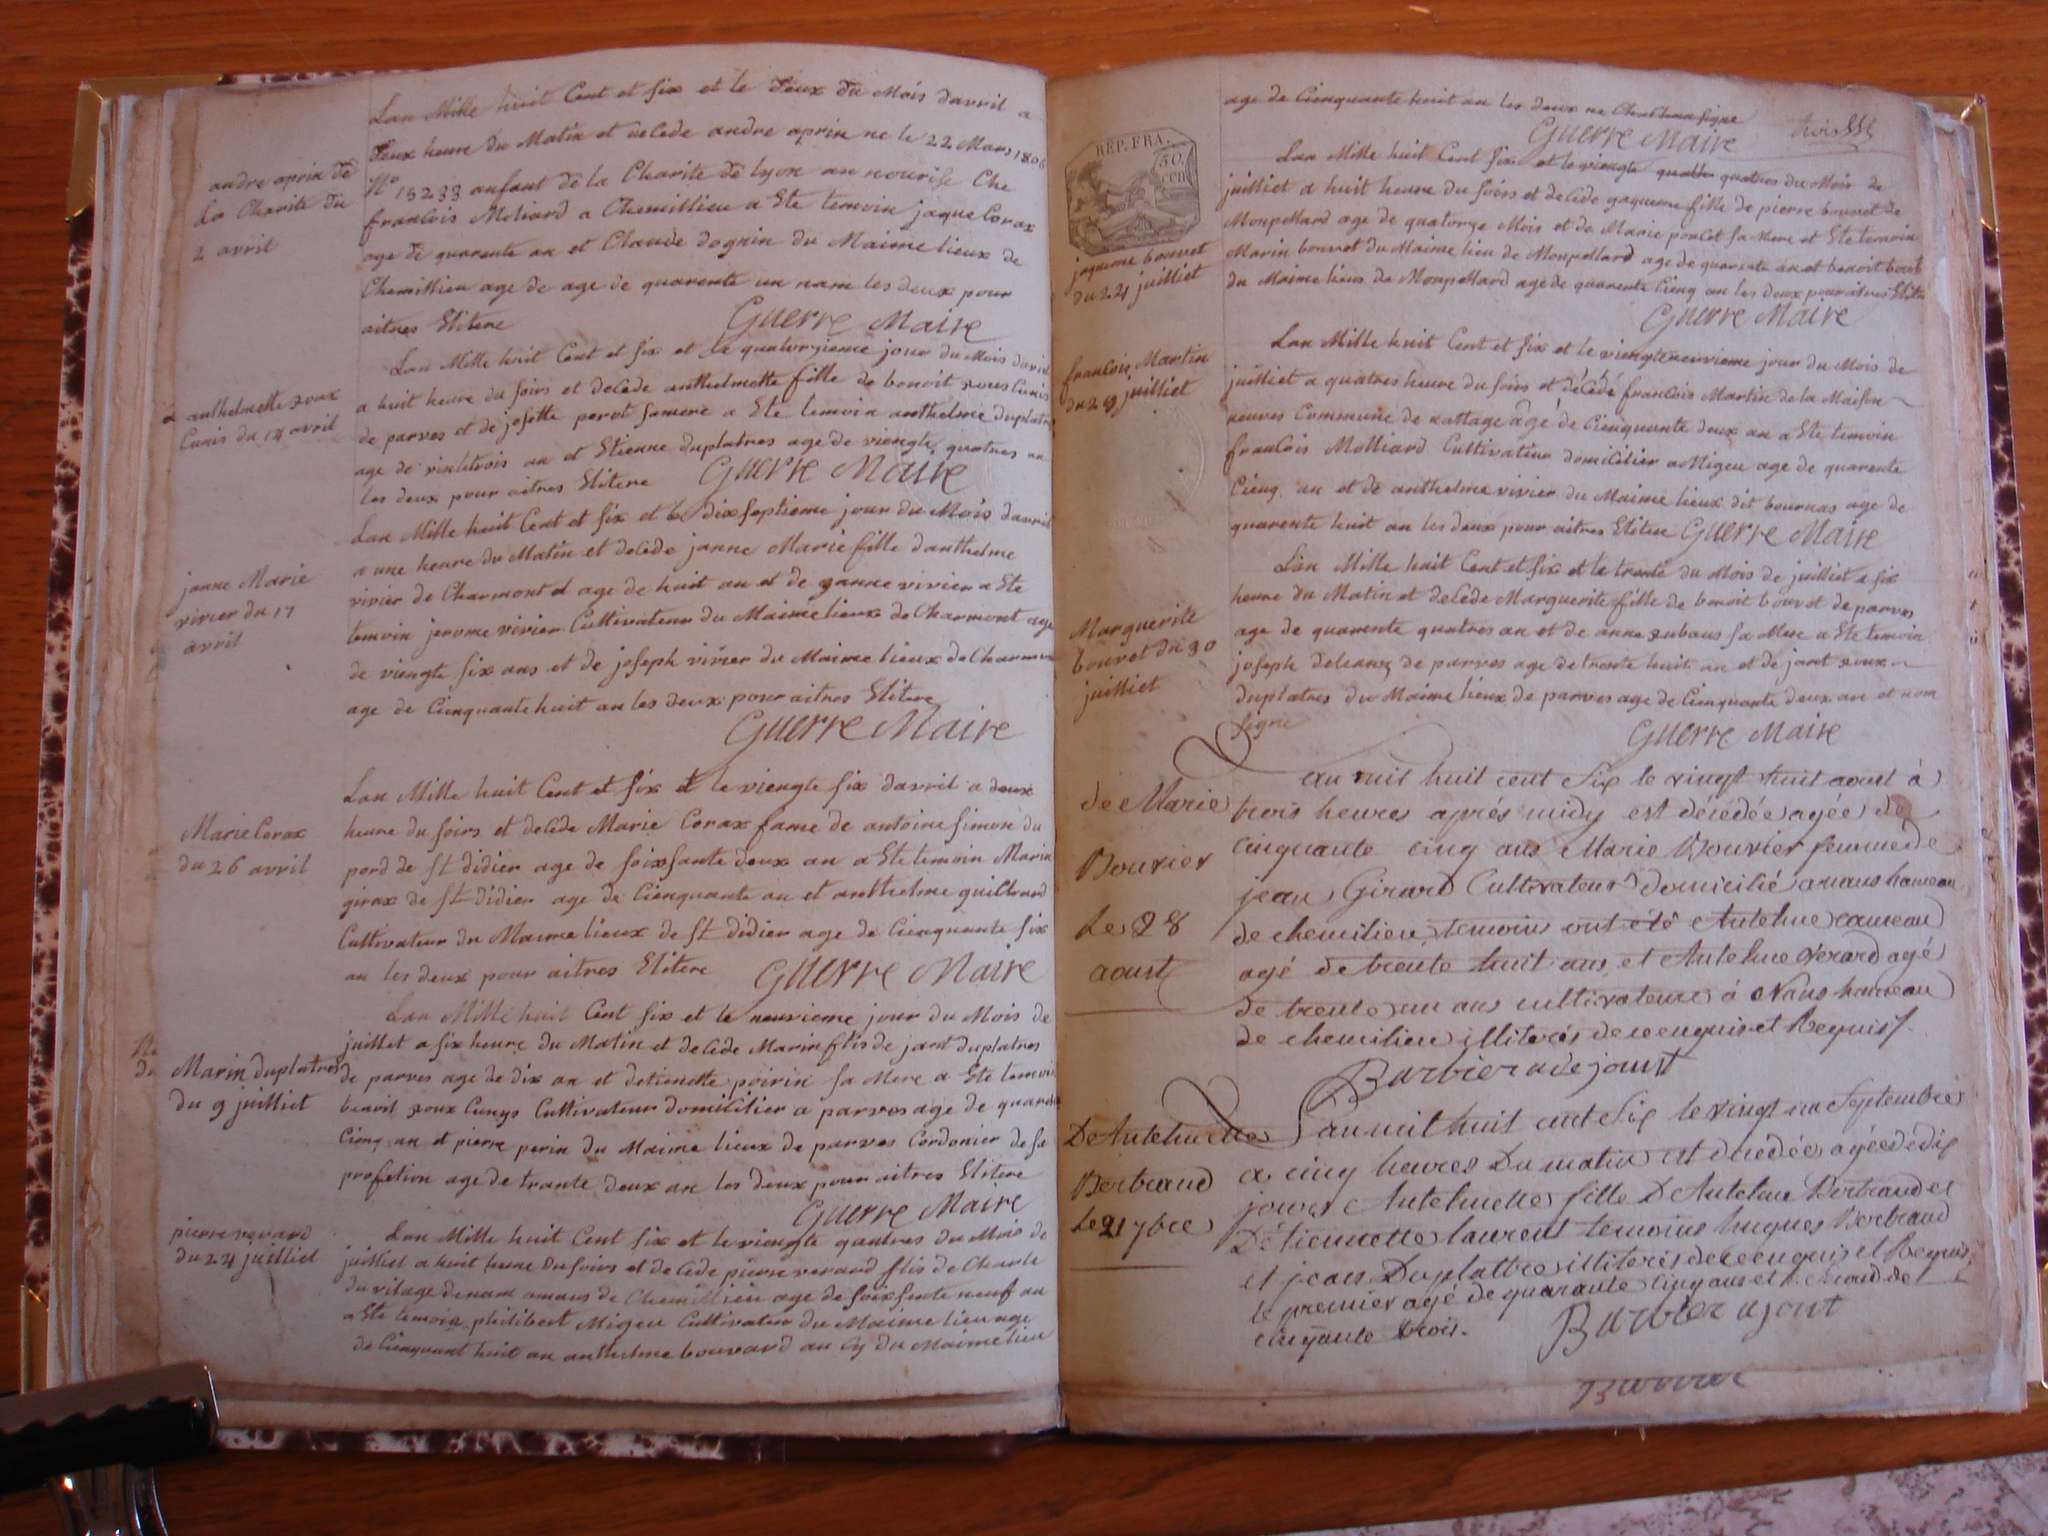 Lan Mille huit Cent et six et le deux du Mois davril a
deux heure du Matin et decede andre aprin ne le 22 Mars 1806
N° 15233 anfant de la Charite de lyon an nourise Che
francois Moliard a Chemillieu a Ete temoin jaque Corax
age de quarente an et Claude dognin du Maime lieux de
Chemillieu age de age de quarente un nam les deux pour
aitres Elitere
Guerre Maire
andre aprin de
La Charite du
2 avril
Lan Mille huit Cent et six et le quatorzieme jour du Mois davril
a huit heure du soirs et decede anthelmette fille de benoit roux Cunis
de parves et de josette perot samere a Ete temoin anthelme duplatre
age de vintetrois an et Etienne duplatres age de viengte quatres an
les deux pour aitres Elitere Guerre Maire
anthelmette roux
Cunis du 14 avril
Lan Mille huit Cent et six et le dixseptieme jour du Mois davril
a une heure du Matin et decede janne Marie fille danthelme
vivier de Charmont et age de huit an et de ganne vivier a Ete
temoin jerome vivier Cultivateur du Maime lieux de Charmont age
de viengte six ans et de joseph vivier du Maime lieux de Charmon
age de Cienquante huit an les deux pour aitres Elitere
Guerre Maire
janne Marie
vivier du 17
avril
Lan Mille huit Cent et six et le viengte six davril a deux
heure du soirs et decede Marie Corax fame de antoine simon du
pord de St didier age de soixsante deux an a Ete temoin Marin
girax de St didier age de Cienquante an et anthelme guilland
Cultivateur du Maime lieux de St didier age de Cienquante six
an les deux pour aitres Elitere Guerre Maire
Marie Corax
du 26 avril
Lan Mille huit Cent six et le neuvieme jour du Mois de
juillet a six heure du Matin et decede Marin fils de jant duplatres
de parves age de dix an et detienette poirin sa Mere a Ete temoin
benoit roux Cunys Cultivateur domicilier a parves age de quarente
Cienq an et pierre perin du Maime lieux de parves Cordonier de sa
profetion age de trante deux an les deux pour aitres Elitere
Guerre Maire
Marin duplatres
du 9 juilliet
Lan Mille huit Cent six et le viengte quatres du Mois de
juilliet a huit heure du soirs et decede pierre verard fils de Charle
du vilage de nant de Chemillieu age de soixsente neuf an
a Ete temoin philibert Migeu Cultivateur du Maime lieu age
de Cienquant huit an anthelme bouvard du Maime lieu
pierre verard
du 24 juilliet
age de Cienquante huit an les deux ne signe
Guerre Maire
trois
REP. FRA.
50.
cen
Lan Mille huit Cent six et le viengte quatres du Mois de
juilliet a huit heure du soirs et decede gaqueme fille de pierre bouvet de
Monpellard age de quatorze Mois et de Marie poncet sa Mere et Ete temoin
Marin bouvet du Maime lieu de Monpellard age de quarente an et benoit bouvet
du Maime lieus de Monpellard age de quarente Cienq an les deux pour aitres Elitere
Guerre Maire
jaqueme bouvet
du 24 juilliet
Lan Mille huit Cent et six et le viengteneuvieme jour du Mois de
juilliet a quatres heure du soirs et décédé francois Martin de la Maison
neuves Commune de nattage age de Cienquante deux an a Ete temoin
francois Molliard Cultivateur domicilier a Migeu age de quarente
Cienq an et de anthelme vivier du Maime lieux dit bournas age de
quarente huit an les deux pour aitres Elitere Guerre Maire
francois Martin
du 29 juilliet
Lan Mille huit Cent et six et le trente du Mois de juilliet a six
heure du Matin et decede Marguerite fille de benoit bouvet de parves
age de quarente quatres an et de anne rubaus sa Mere a Ete temoin
joseph deleanz de parves age de trente huit an et de jant roux
duplatres du Maime lieux de parves age de Cienquante deux an et nom
signe
Guerre Maire
Marguerite
bouvet du 30
juilliet
an mil huit cent Six le vingt huit aoust à
trois heures aprés midy est décédée agée de
cinquante cinq ans Marie Bouvier femme de
jean Girard Cultivateur domicilié a nans hameau
de chemilieu temoins ont été Antelme carreau
agé de trente huit ans et Antelme Verard agé
de trente un ans cultivateurs à Nans hameau
de chemilieu illiterés de ce enquis et Requis.
Barbier adejoint
de Marie
Bouvier
Le 28
aoust
an mil huit cent Six le vingt un Septembre
a cinq heures Du matin est décédée agée de dix
jours Antelmette fille D'Antelme Bertrand et
D'étiennette laurent temoins hugues Bertrand
et jean Duplattre illiterés de ce enquis et Requis
le premier agé de quarante cinq ans et
cinquante trois.
Barbier ajoint
De Antelmette
Bertrand
Le 21 7bre